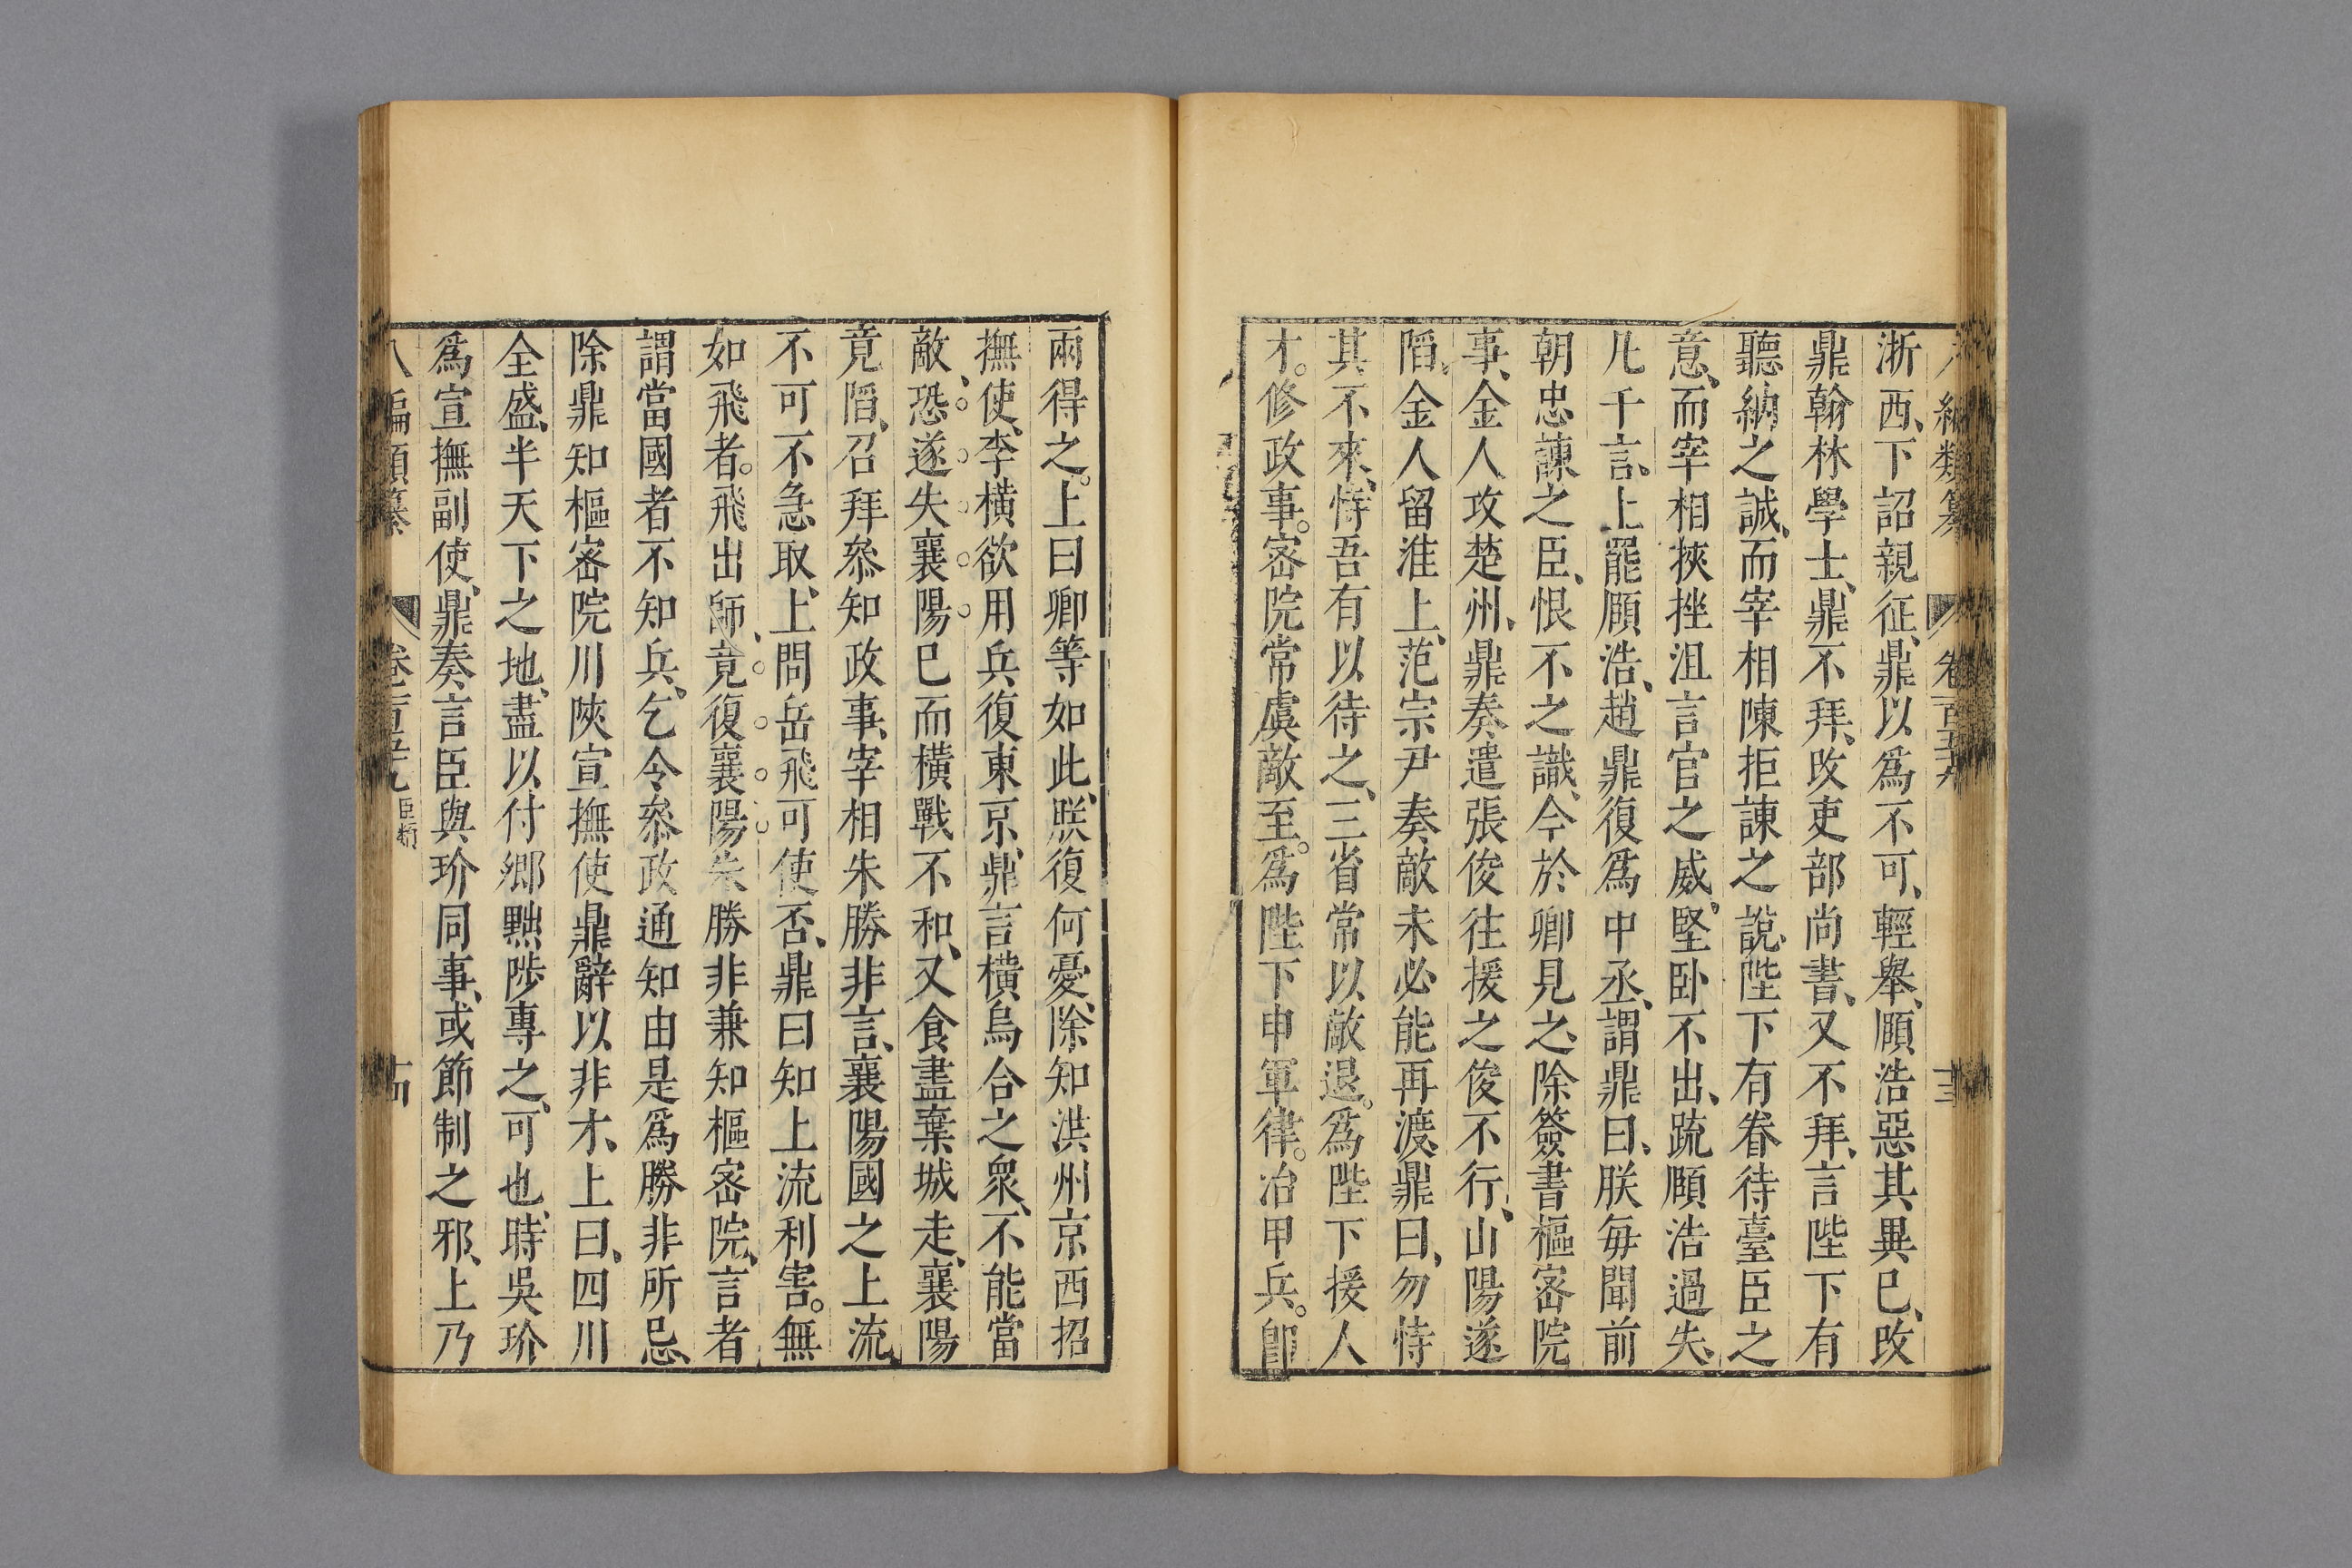 八編類纂 卷一百五十九 十三
浙西、下詔親征、鼎以爲不可、輕舉、頤浩惡其異已、改
鼎翰林學士、鼎不拜、改吏部尚書、又不拜、言陛下有
聽納之誠、而宰相陳拒諫之說、陛下有眷待臺臣之
意、而宰相挾挫沮言官之威、堅卧不出、疏頤浩過失、
凡千言、上罷頤浩、趙鼎復爲中丞、謂鼎曰、朕每聞前
朝忠諫之臣、恨不之識、今於卿見之、除簽書樞密院
事、金人攻楚州、鼎奏遣張俊往援之、俊不行、山陽遂
陷、金人留淮上、范宗尹奏敵未必能再渡、鼎曰、勿恃
其不來、恃吾有以待之、三省常以敵退。爲陛下援人
才。修政事。密院常虞敵至。爲陛下申軍律。治甲兵。卽
兩得之。上曰卿等如此、朕復何憂、除知洪州京西招
撫使、李橫欲用兵復東京、鼎言橫烏合之衆、不能當
敵、恐遂失襄陽巳而橫戰不和、又食盡棄城走、襄陽
竟陷、召拜叅知政事、宰相朱勝非言、襄陽國之上流、
不可不急取、上問岳飛可使否、鼎曰知上流利害。無
如飛者。飛出師、竟復襄陽朱勝非兼知樞密院、言者
謂當國者不知兵、乞令叅政通知由是爲勝非所忌、
除鼎知樞密院川陝宣撫使鼎辭以非才、上曰、四川
全盛、半天下之地、盡以付卿黜陟專之、可也、時吳玠
爲宣撫副使、鼎奏言臣與玠同事、或節制之邪、上乃
八編類纂 卷一百五十九 臣類 十四